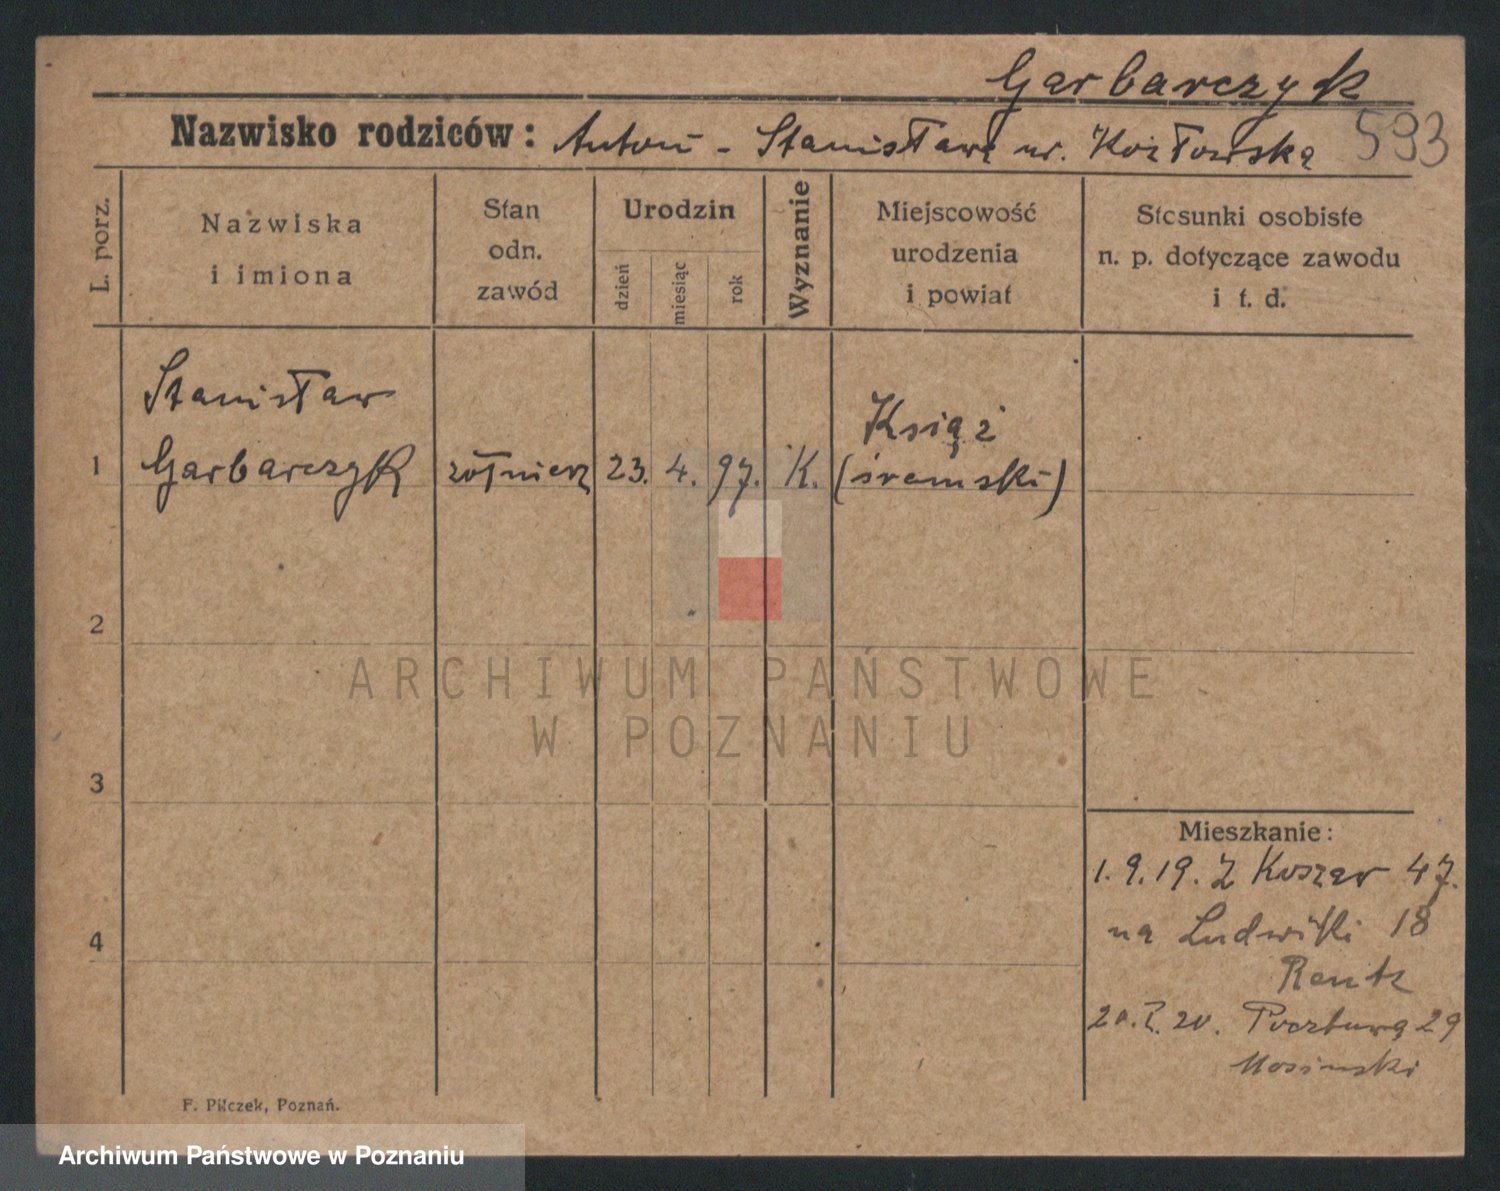 Garbarczyk
Nazwisko rodziców: Antoni - Stanisława ur. Kozłowska 593
L. porz.
Nazwiska
i imiona
Stan
odn.
zawód
Urodzin
dzień
miesiąc
rok
Wyznanie
Miejscowość
urodzenia
i powiat
Stosunki osobiste
n. p. dotyczące zawodu
i t. d.
Stanisław
1 Garbarczyk żołnierz 23. 4. 97. K. Książ
(śremski)
2
3
4
ARCHIWUM PAŃSTWOWE
W POZNANIU
Mieszkanie:
1.9.19. Z Koszar 47.
na Ludwiki 18
Rentz
20. 20. Pocztową 29
Mosinski
F. Pilczek, Poznań.
Archiwum Państwowe w Poznaniu